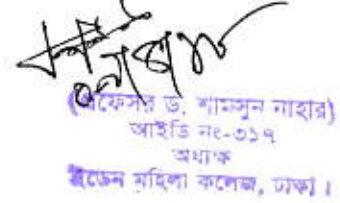 (প্রফেসর ড. শামসুন নাহার)
আইডি নং-৩১৭
অধ্যক্ষ
ইডেন মহিলা কলেজ, ঢাকা।